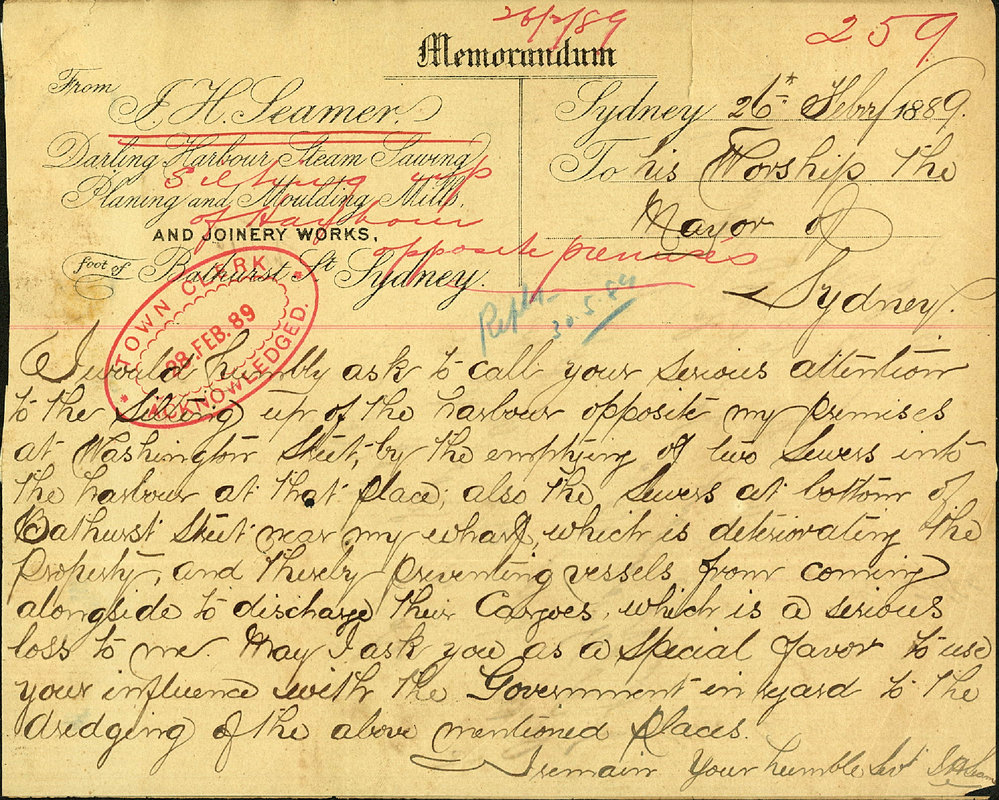 26/2/89
259
Memorandum
From
J. H. Seamer.
Darling Harbour Steam Sawing
Planing and Moulding Mills,
AND JOINERY WORKS,
foot of Bathurst St Sydney.
Silting up
of Harbour
opposite premises
Sydney 26th Febry 1889.
To his Worship the
Mayor of
Sydney.
TOWN CLERK
28. FEB. 89
ACKNOWLEDGED.
30.5.89
I would humbly ask to call your serious attention
to the Silting up of the harbour opposite my premises
at Washington Street, by the emptying of two Sewers into
the harbour at that place; also the Sewers at bottom of
Bathurst Street near my wharf, which is deteriorating the
Property, and thereby preventing vessels from coming
alongside to discharge their Cargoes, which is a serious
loss to me May I ask you as a Special favor to use
your influence with the Government in regard to the
dredging of the above mentioned places.
I remain Your humble Svt